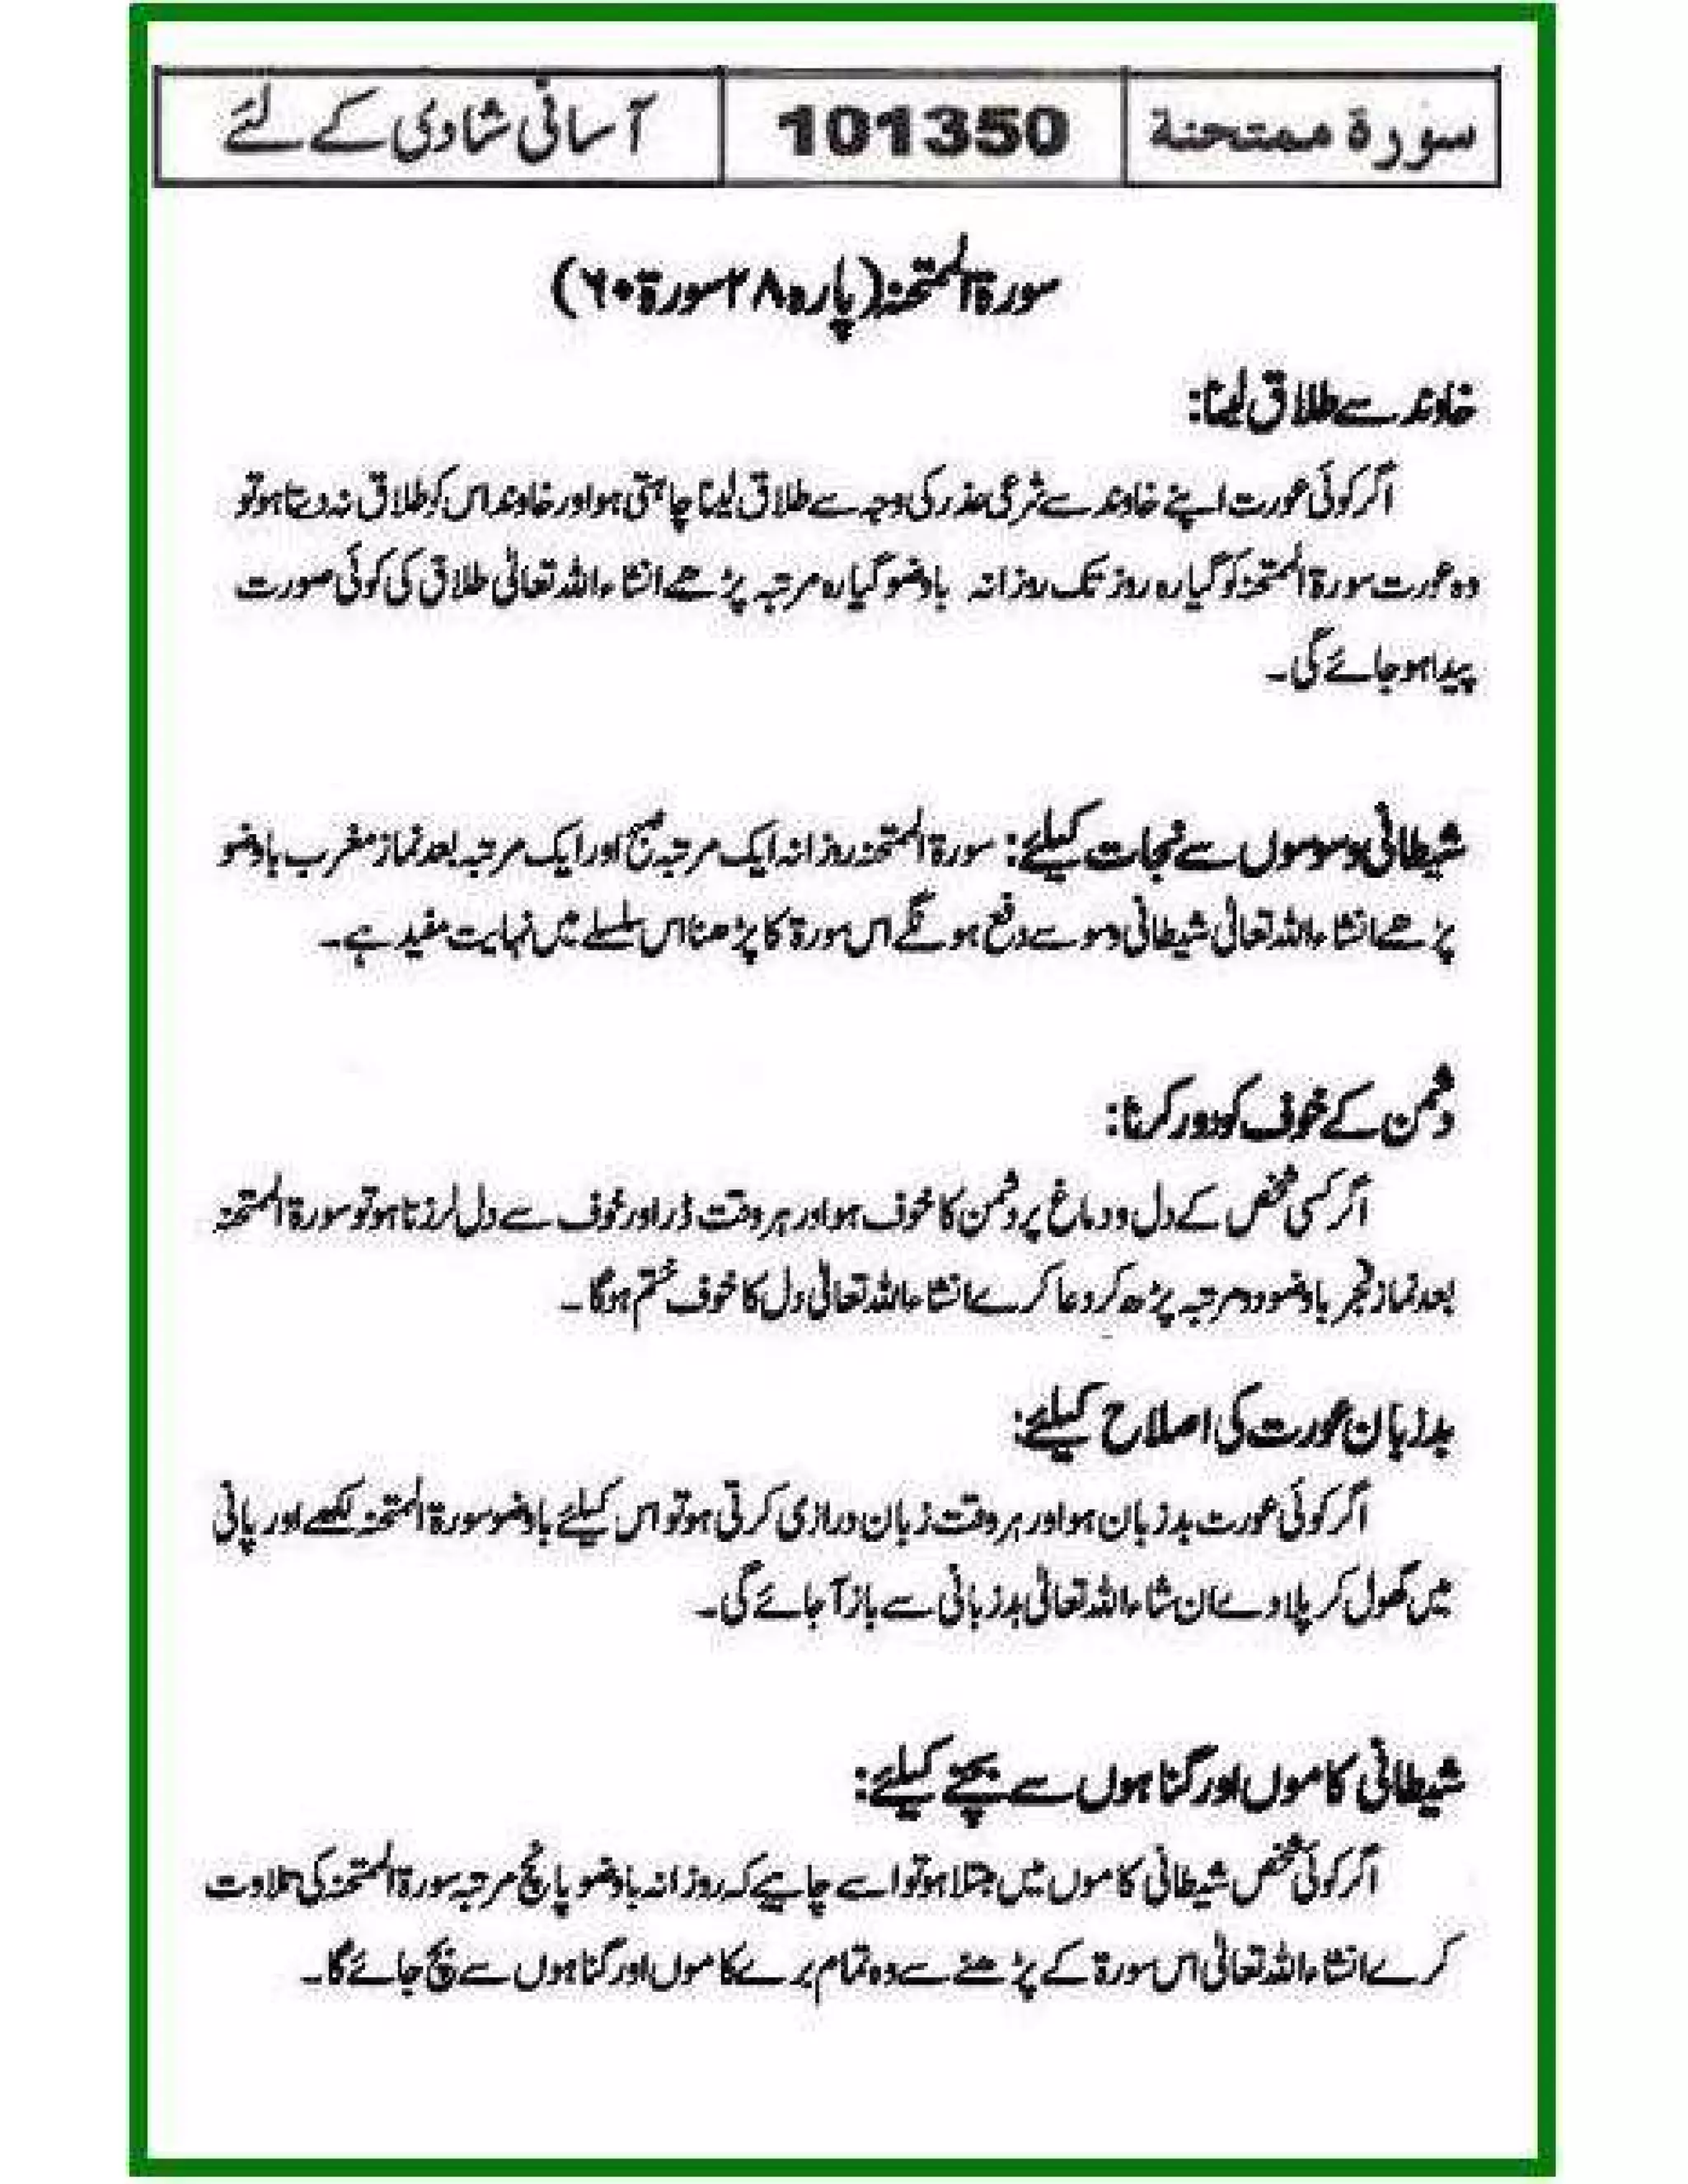 سورۃ ممتحنة 101350 آسانی شادی کے لئے
سورۃ الممتحنہ (پارہ ۲۸ سورۃ ۶۰)
خاوند سے طلاق لینا:
اگر کوئی عورت اپنے خاوند سے شرعی عذر کی وجہ سے طلاق لینا چاہتی ہو اور خاوند اس کو طلاق نہ دیتا ہو تو
وہ عورت سورۃ الممتحنہ کو گیارہ روز تک روزانہ باوضو گیارہ مرتبہ پڑھے انشاءاللہ تعالیٰ طلاق کی کوئی صورت
پیدا ہو جائے گی۔
شیطانی وسوسوں سے نجات کیلئے: سورۃ الممتحنہ روزانہ ایک مرتبہ صبح اور ایک مرتبہ بعد نماز مغرب باوضو
پڑھے انشاءاللہ تعالیٰ شیطانی وسوسے دفع ہونگے اس سورۃ کا پڑھنا اس سلسلے میں نہایت مفید ہے۔
دشمن کے خوف کو دور کرنا:
اگر کسی شخص کے دل و دماغ پر دشمن کا خوف ہو اور ہر وقت ڈر اور خوف سے دل لرزتا ہو تو سورۃ الممتحنہ
بعد نماز فجر باوضو دو مرتبہ پڑھ کر دعا کرے انشاءاللہ تعالیٰ دل کا خوف ختم ہوگا۔
بدزبان عورت کی اصلاح کیلئے:
اگر کوئی عورت بدزبان ہو اور ہر وقت زبان درازی کرتی ہو تو اس کیلئے باوضو سورۃ الممتحنہ لکھے اور پانی
میں گھول کر پلاوے ان شاءاللہ تعالیٰ بدزبانی سے باز آجائے گی۔
شیطانی کاموں اور گناہوں سے بچنے کیلئے:
اگر کوئی شخص شیطانی کاموں میں مبتلا ہو تو اسے چاہیے کہ روزانہ باوضو پانچ مرتبہ سورۃ الممتحنہ کی تلاوت
کرے انشاءاللہ تعالیٰ اس سورۃ کے پڑھنے سے وہ تمام برے کاموں اور گناہوں سے بچ جائے گا۔